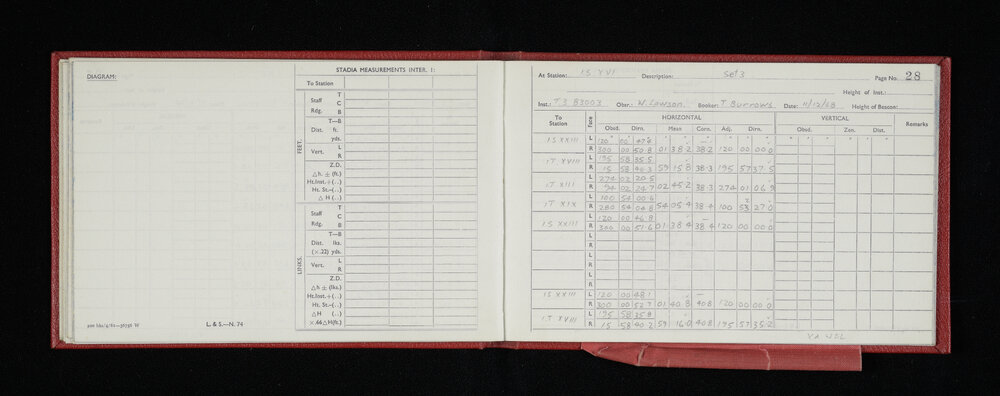 DIAGRAM:
STADIA MEASUREMENTS INTER. 1:
To Station
FEET.
Staff Rdg. T C B
Dist. T—B ft. yds.
Vert. L R
Z.D.
△h ± (ft.)
Ht.Inst.+(...)
Ht. St.–(...)
△ H (...)
LINKS.
Staff Rdg. T C B
Dist. T—B lks. (×.22) yds.
Vert. L R
Z.D.
△h ± (lks.)
Ht.Inst.+(...)
Ht. St.–(...)
△H (...)
×.66△H(ft.)
L. & S.—N. 74
At Station: IS XVI Description: Set 3 Page No. 28
Height of Inst.:
Inst.: T3 B3003 Obsr.: N. Lawson. Booker: T Burrows Date: 11/12/68 Height of Beacon:
To Station Face HORIZONTAL VERTICAL Remarks
Obsd. Dirn. Mean Corn. Adj. Dirn. Obsd. Zen. Dist.
IS XXIII L 120 00 47.6 —
R 300 00 50.8 01 38.2 38.2 120 00 00.0
IT XVIII L 195 58 35.5
R 15 58 40.3 59 15.8 38.3 195 57 37.5
IT XIII L 274 02 20.5
R 94 02 24.7 02 45.2 38.3 274 01 06.9
IT XIX L 100 54 00.6
R 280 54 04.8 54 05.4 38.4 100 53 27.0
IS XXIII L 120 00 46.8 —
R 300 00 51.6 01 38.4 38.4 120 00 00.0
L
R
L
R
L
R
IS XXIII L 120 00 48.1 —
R 300 00 52.7 01 40.8 40.8 120 00 00.0
IT XVIII L 195 58 35.8
R 15 58 40.2 59 16.0 40.8 195 57 35.2